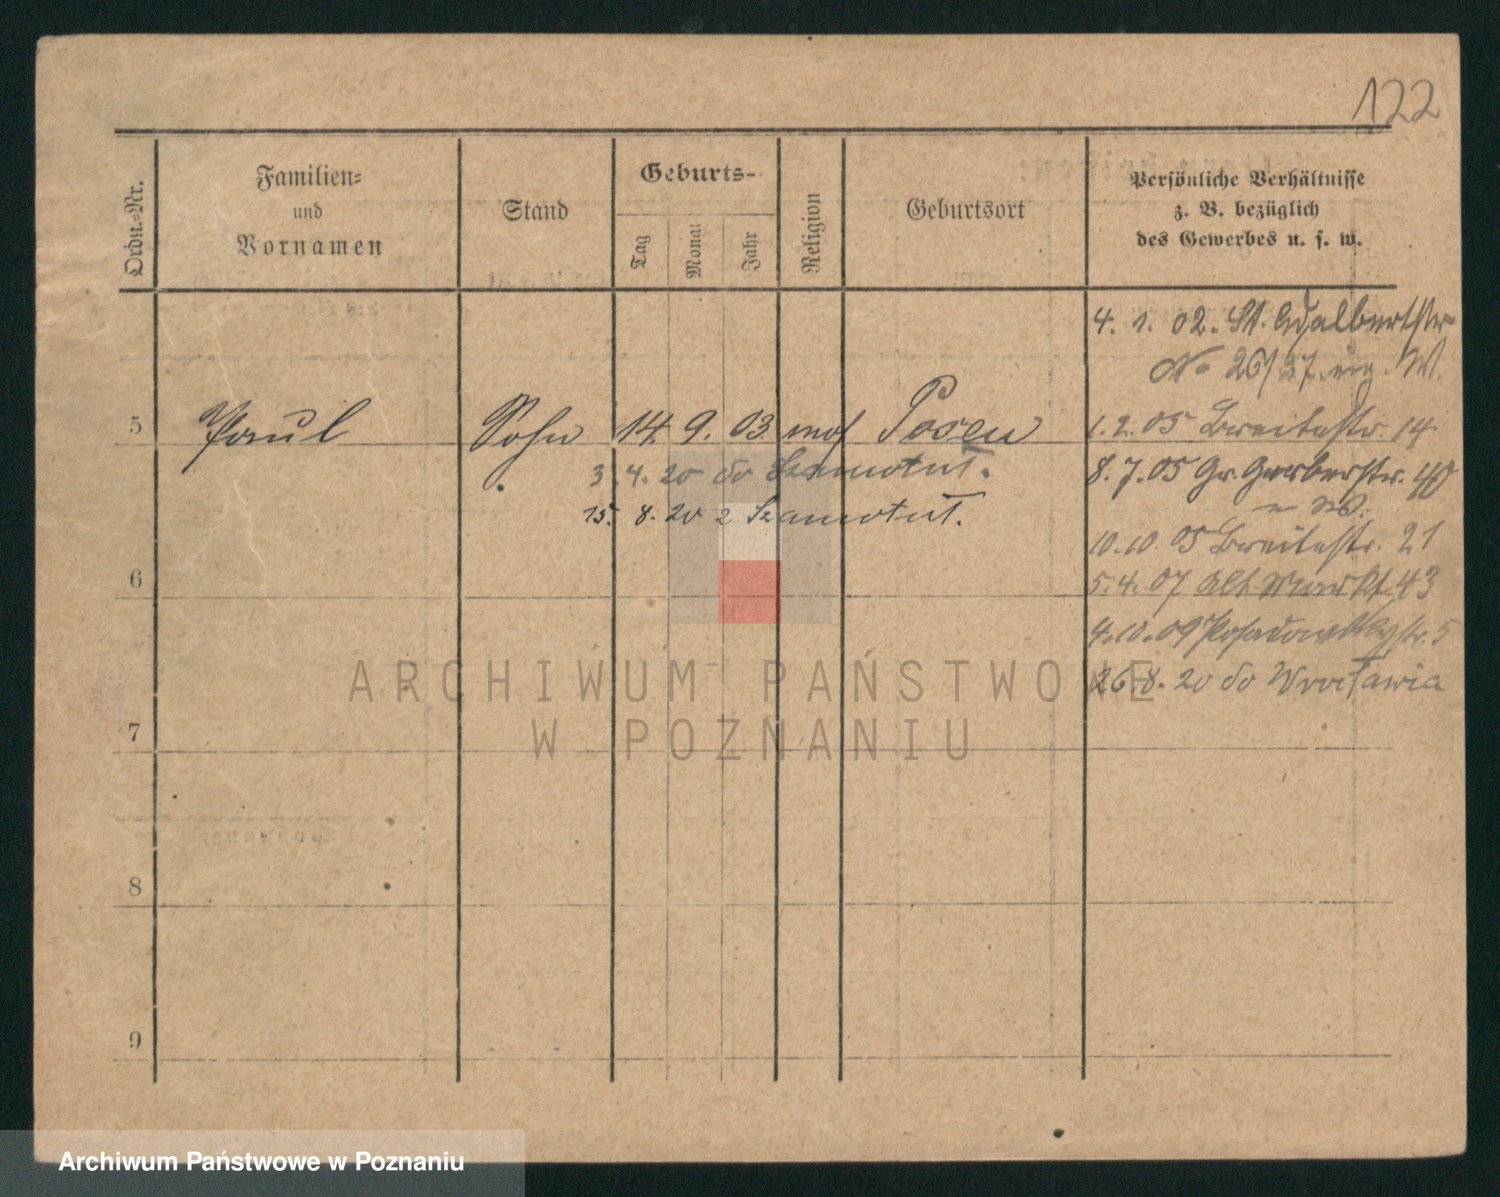 122
Ordn.-Nr.
Familien-
und
Vornamen
Stand
Geburts-
Tag
Monat
Jahr
Religion
Geburtsort
Persönliche Verhältnisse
z. B. bezüglich
des Gewerbes u. s. w.
4. 1. 02. St. Adalbertstr
No 26/27. W.
5 Paul Sohn 14 9. 03 mos Posen
1. 2. 05 Breitestr. 14
3. 4. 20 do Szamotuł.
8. 7. 05 Gr. Gerberstr. 40
15. 8. 20 z Szamotuł.
10. 10. 05 Breitestr. 21
6
5. 4. 07 Alt Markt 43
4. 10. 09 Posadowskystr. 5
26. 8. 20 do Wrocławia
7
8
9
ARCHIWUM PAŃSTWOWE
W POZNANIU
Archiwum Państwowe w Poznaniu